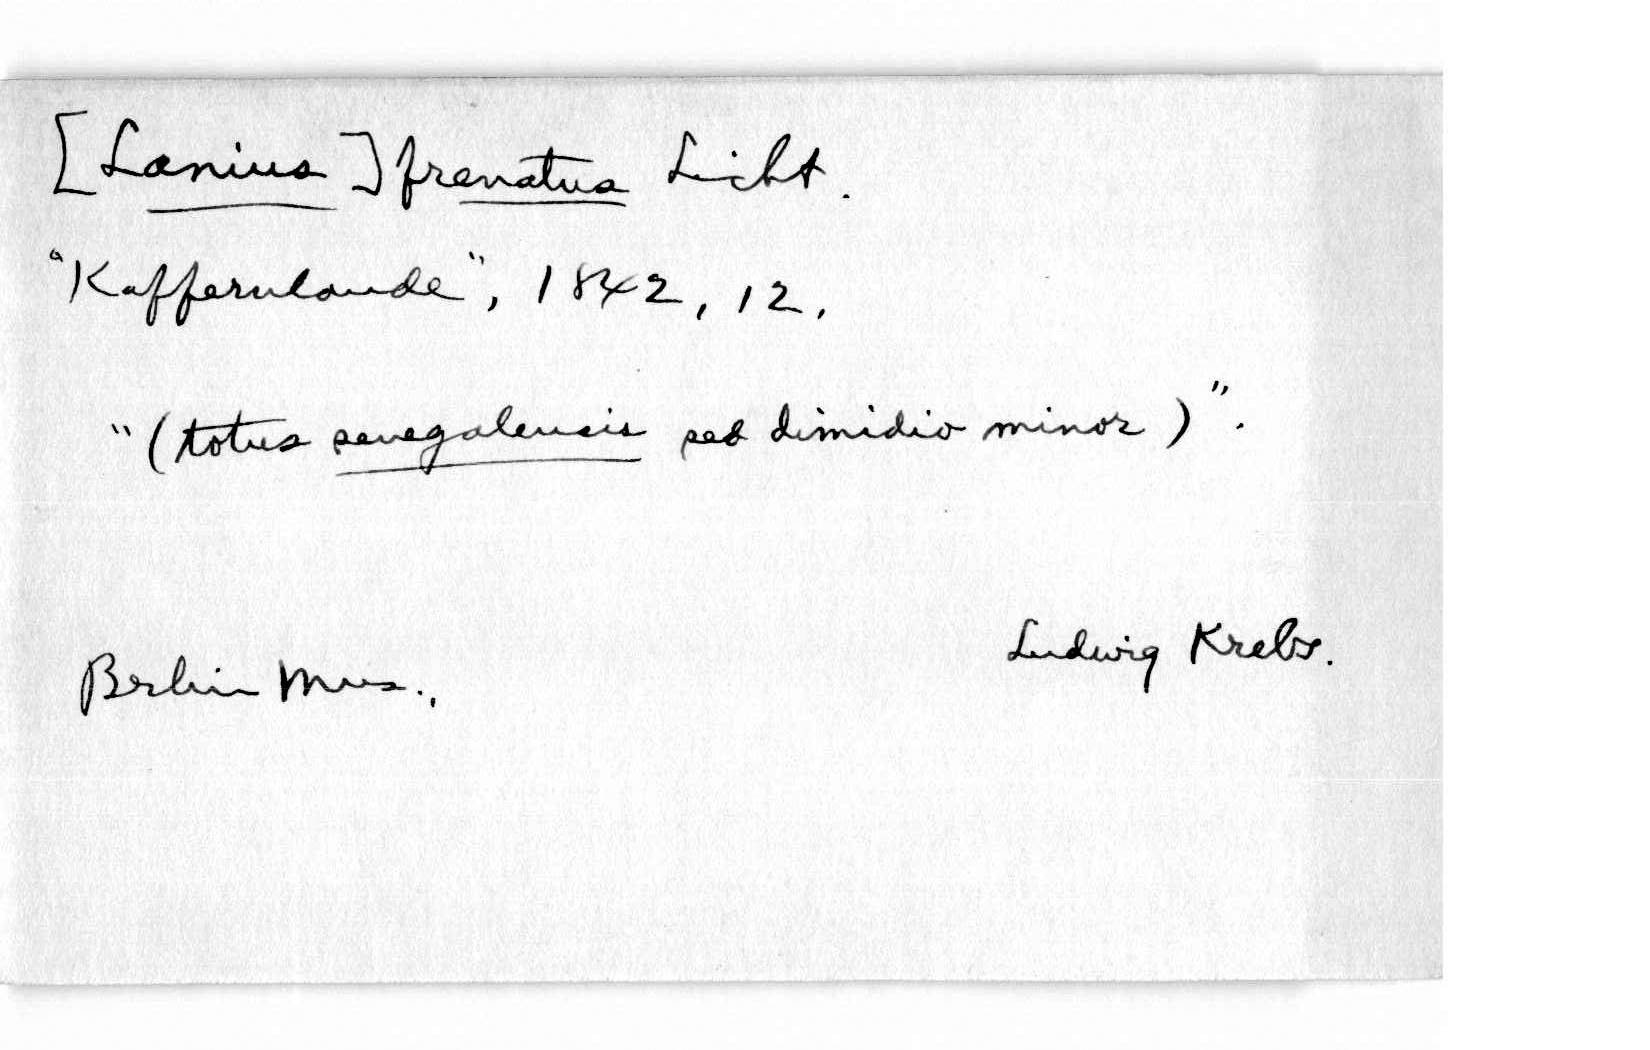 [Lanius] frenatus Licht.
"Kaffernlande", 1842, 12.
"(totus senegalensis sed dimidio minor)".
Ludwig Krebs.
Berlin Mus.,